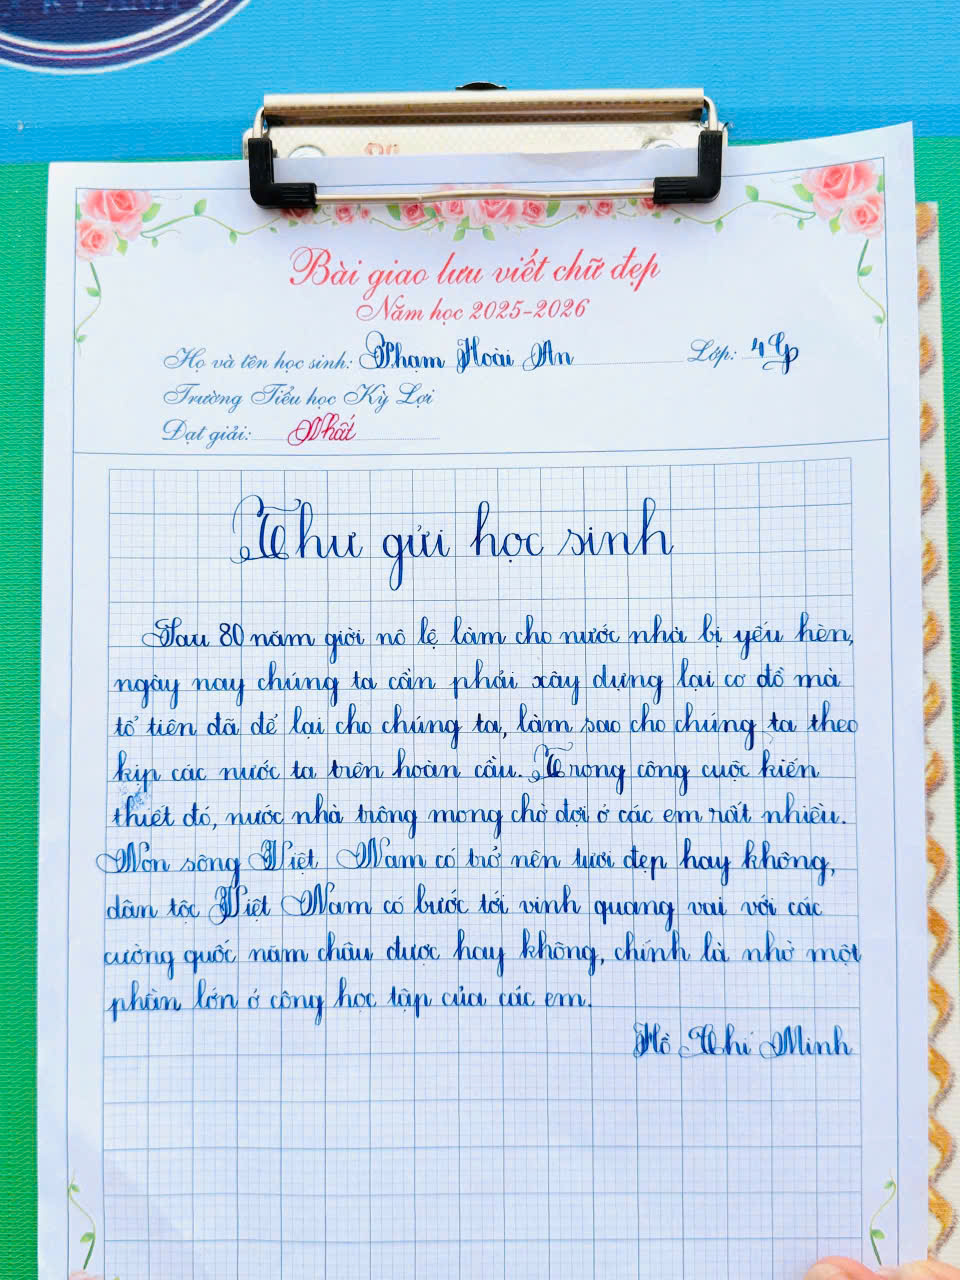 Bài giao lưu viết chữ đẹp
Năm học 2025-2026
Họ và tên học sinh: Phạm Hoài An Lớp: 4G
Trường Tiểu học Kỳ Lợi
Đạt giải: Nhất
Thư gửi học sinh
Sau 80 năm giời nô lệ làm cho nước nhà bị yếu hèn,
ngày nay chúng ta cần phải xây dựng lại cơ đồ mà
tổ tiên đã để lại cho chúng ta, làm sao cho chúng ta theo
kịp các nước ta trên hoàn cầu. Trong công cuộc kiến
thiết đó, nước nhà trông mong chờ đợi ở các em rất nhiều.
Non sông Việt Nam có trở nên tươi đẹp hay không,
dân tộc Việt Nam có bước tới vinh quang vai với các
cường quốc năm châu được hay không, chính là nhờ một
phần lớn ở công học tập của các em.
Hồ Chí Minh